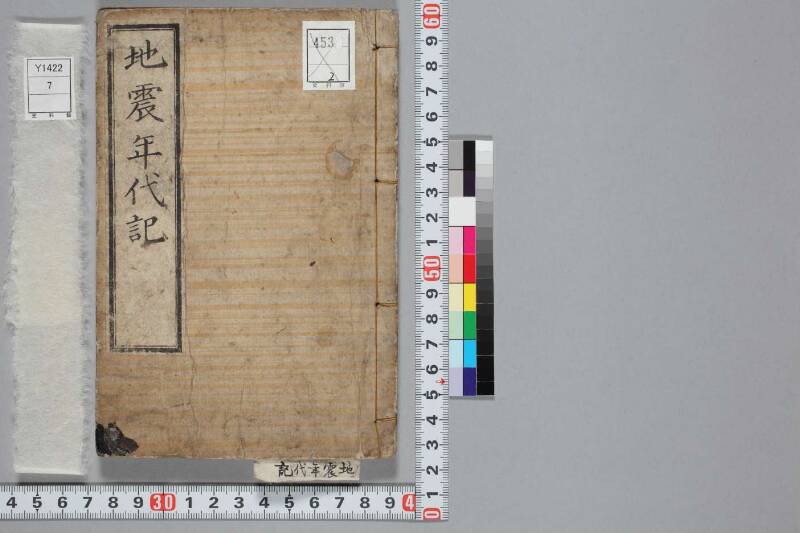 地震年代記
453
2
Y1422
7
地震年代記
60
9
8
7
6
5
4
3
2
1
50
9
8
7
6
5
4
3
2
1
0
4
5
6
7
8
9
30
1
2
3
4
5
6
7
8
9
4